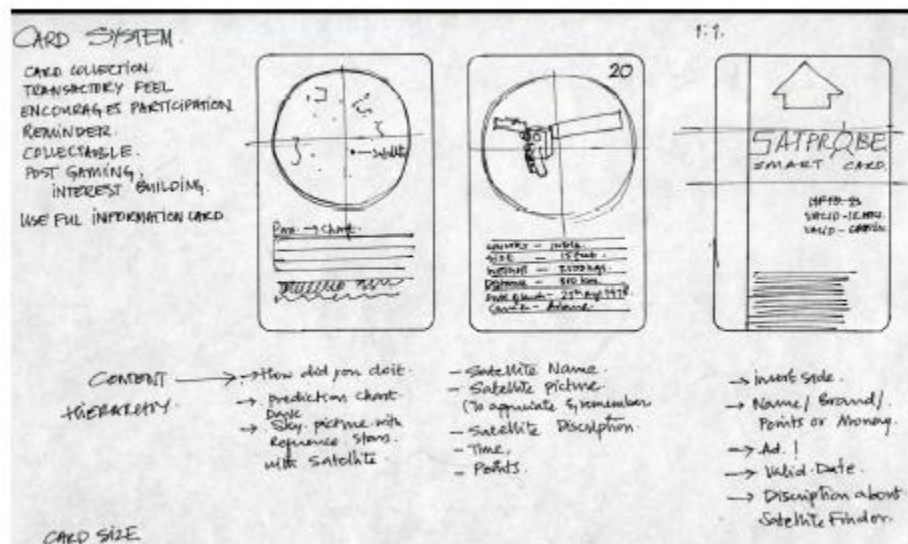 CARD SYSTEM.
CARD COLLECTION.
TRANSACTORY FEEL
ENCOURAGES PARTICIPATION
REMINDER.
COLLECTABLE.
POST GAMING,
INTEREST BUILDING.
USEFUL INFORMATION CARD
→ Chart
20
COUNTRY - INDIA.
SIZE - 15 feet.
WEIGHT -
Distance -
1:1.
SATPROBE
SMART CARD.
CONTENT
HIERARCHY.
→ How did you do it.
→ prediction chart
→ Sky picture with
Reference Stars
with Satellite.
- Satellite Name.
- Satellite picture.
(To appreciate & remember
- Satellite Discription
- Time,
- Points.
→ insert side.
→ Name/Brand/
Points or Money.
→ Ad. !
→ Valid Date.
→ Discription about
Satellite Finder.
CARD SIZE